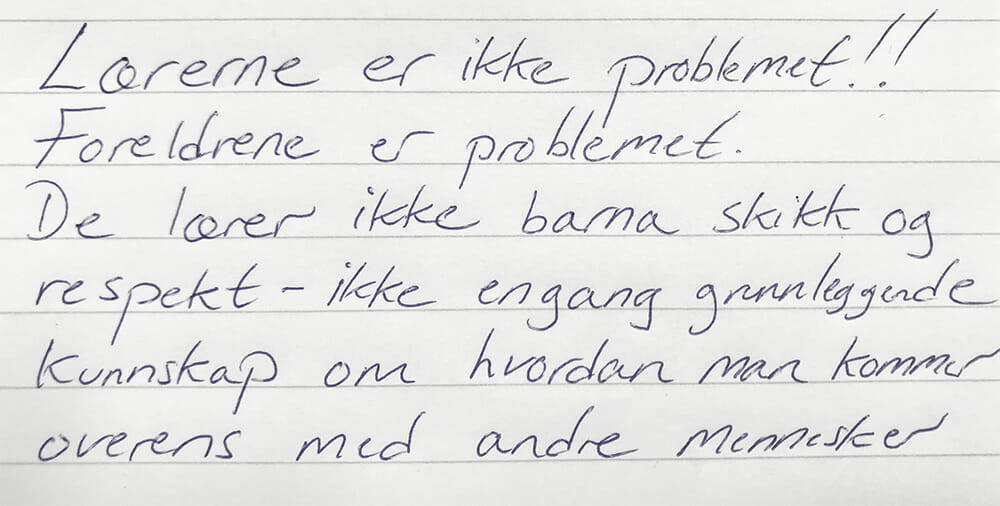 Lærerne er ikke problemet!!
Foreldrene er problemet.
De lærer ikke barna skikk og
respekt - ikke engang grunnleggende
kunnskap om hvordan man kommer
overens med andre mennesker